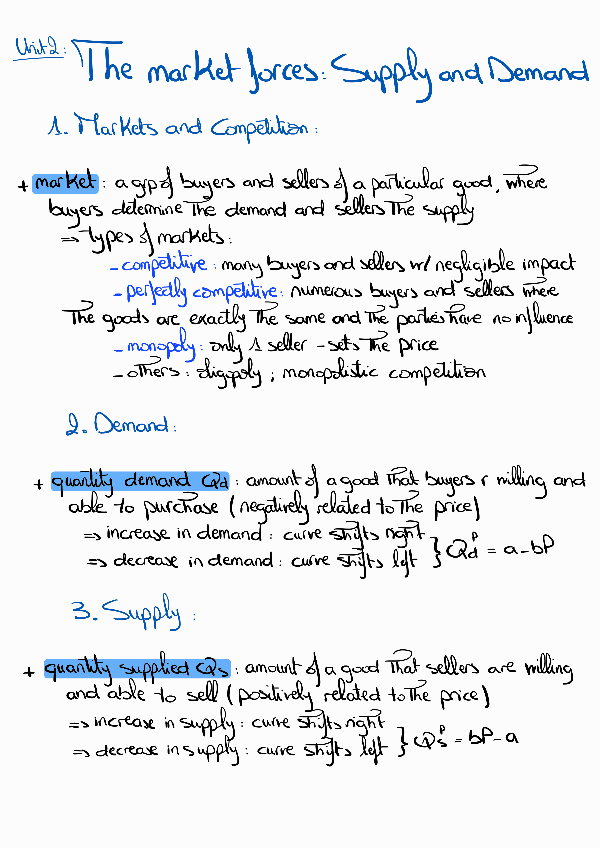 Unit 2:
The market forces: Supply and Demand
1. Markets and Competition:
+ market: a grp of buyers and sellers of a particular good, where
buyers determine the demand and sellers the supply
⇒ types of markets:
- competitive: many buyers and sellers w/ negligible impact
- perfectly competitive: numerous buyers and sellers where
the goods are exactly the same and the parties have no influence
- monopoly: only 1 seller - sets the price
- others: oligopoly; monopolistic competition
2. Demand:
+ quantity demand Qd: amount of a good that buyers r willing and
able to purchase (negatively related to the price)
⇒ increase in demand: curve shifts right
⇒ decrease in demand: curve shifts left } Qd^P = a - bP
3. Supply:
+ quantity supplied Qs: amount of a good that sellers are willing
and able to sell (positively related to the price)
⇒ increase in supply: curve shifts right
⇒ decrease in supply: curve shifts left } Qs^P = bP - a